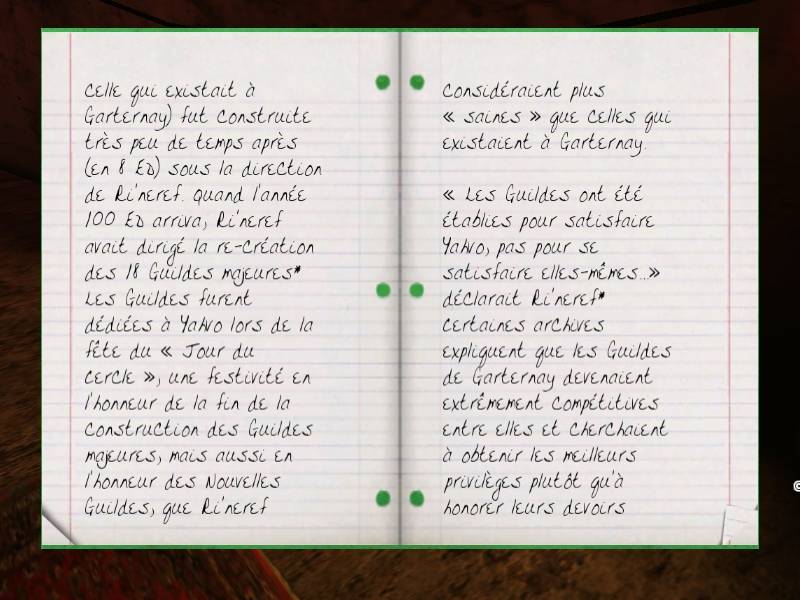 celle qui existait à
Garternay) fut construite
très peu de temps après
(en 8 ED) sous la direction
de Ri'neref. Quand l'année
100 ED arriva, Ri'neref
avait dirigé la re-création
des 18 Guildes majeures*
Les Guildes furent
dédiées à Yahvo lors de la
fête du « Jour du
Cercle », une festivité en
l'honneur de la fin de la
construction des Guildes
majeures, mais aussi en
l'honneur des Nouvelles
Guildes, que Ri'neref
considéraient plus
« saines » que celles qui
existaient à Garternay.
« Les Guildes ont été
établies pour satisfaire
Yahvo, pas pour se
satisfaire elles-mêmes...»
déclarait Ri'neref*
Certaines archives
expliquent que les Guildes
de Garternay devenaient
extrêmement compétitives
entre elles et cherchaient
à obtenir les meilleurs
privilèges plutôt qu'à
honorer leurs devoirs
©